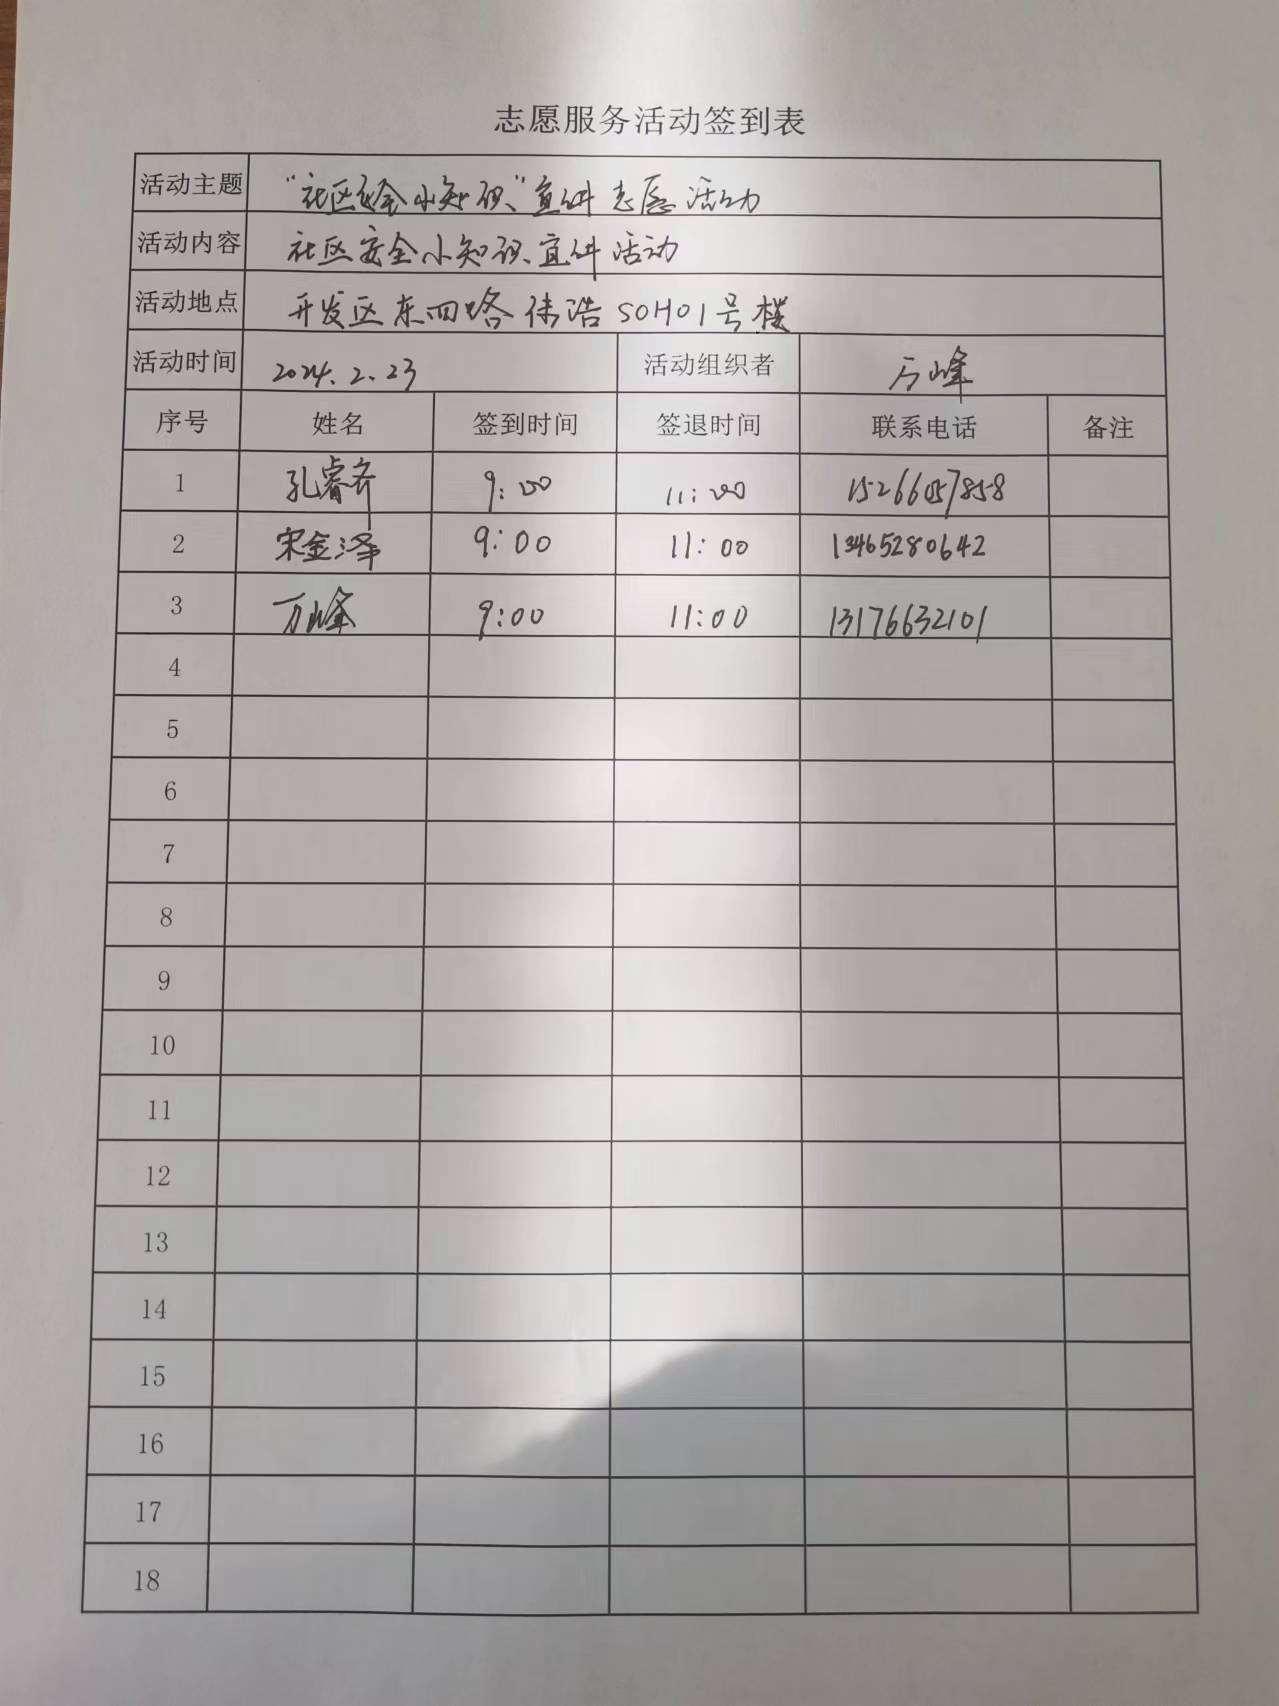 志愿服务活动签到表
活动主题 “社区安全小知识”宣传志愿活动
活动内容 社区安全小知识宣传活动
活动地点 开发区东四路伟浩SOHO1号楼
活动时间 2024.2.23 活动组织者 万峰
序号 姓名 签到时间 签退时间 联系电话 备注
1 孔睿齐 9:00 11:00
2 宋金泽 9:00 11:00 13465280642
3 万峰 9:00 11:00 13176632101
4
5
6
7
8
9
10
11
12
13
14
15
16
17
18